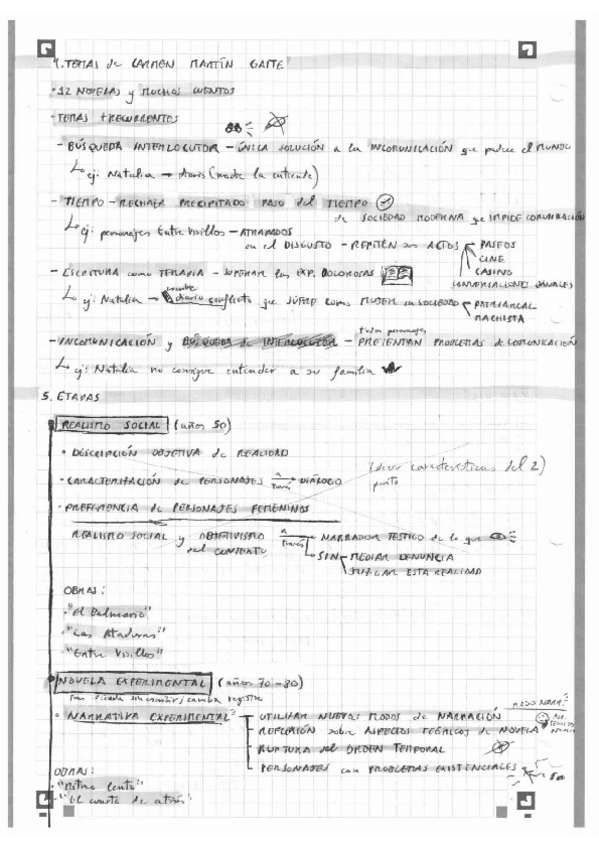 4. TEMAS de CARMEN MARTÍN GAITE
· 12 NOVELAS y MUCHOS CUENTOS
- TEMAS RECURRENTES
- BÚSQUEDA INTERLOCUTOR - ÚNICA SOLUCIÓN a la INCOMUNICACIÓN que padece el MUNDO
ej: Natalia → diario (nadie la entiende)
- TIEMPO - RECHAZA PRECIPITADO PASO del TIEMPO
de SOCIEDAD MODERNA que IMPIDE COMUNICACIÓN
ej: personajes Entre Visillos - ATRAPADOS
en el DISGUSTO - REPITEN sus ACTOS
PASEOS
CINE
CASINO
CONVERSACIONES BANALES
- ESCRITURA como TERAPIA - SUPERAR las EXP. DOLOROSAS
ej: Natalia → escribe diario conflicto que SUFRE como MUJER en SOCIEDAD
PATRIARCAL
MACHISTA
- INCOMUNICACIÓN y - todos personajes PRESENTAN PROBLEMAS de COMUNICACIÓN
ej: Natalia no consigue entender a su familia
5. ETAPAS
REALISMO SOCIAL (años 50)
· DESCRIPCIÓN OBJETIVA de REALIDAD
· CARACTERIZACIÓN de PERSONAJES a través → DIÁLOGO
(decir características del 2)
punto
· PREFERENCIA de PERSONAJES FEMENINOS
REALISMO SOCIAL y OBJETIVISMO a través → NARRADOR TESTIGO de lo que
del CONTEXTO
SIN - MEDIAR DENUNCIA
JUZGAR ESTA REALIDAD
OBRAS:
· "El Balneario"
· "Las Ataduras"
· "Entre Visillos"
NOVELA EXPERIMENTAL (años 70-80)
tras década sin escribir, cambia registro
MODO NARR.
· NARRATIVA EXPERIMENTAL
UTILIZAR NUEVOS MODOS de NARRACIÓN
REFLEXIÓN sobre ASPECTOS TEÓRICOS de NOVELA
RUPTURA del ORDEN TEMPORAL
PERSONAJES con PROBLEMAS EXISTENCIALES
OBRAS:
· "Ritmo lento"
· "El cuarto de atrás"